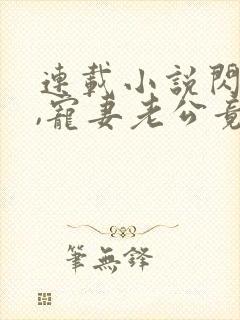 連載小說閃
,寵妻老公竟
筆無鋒